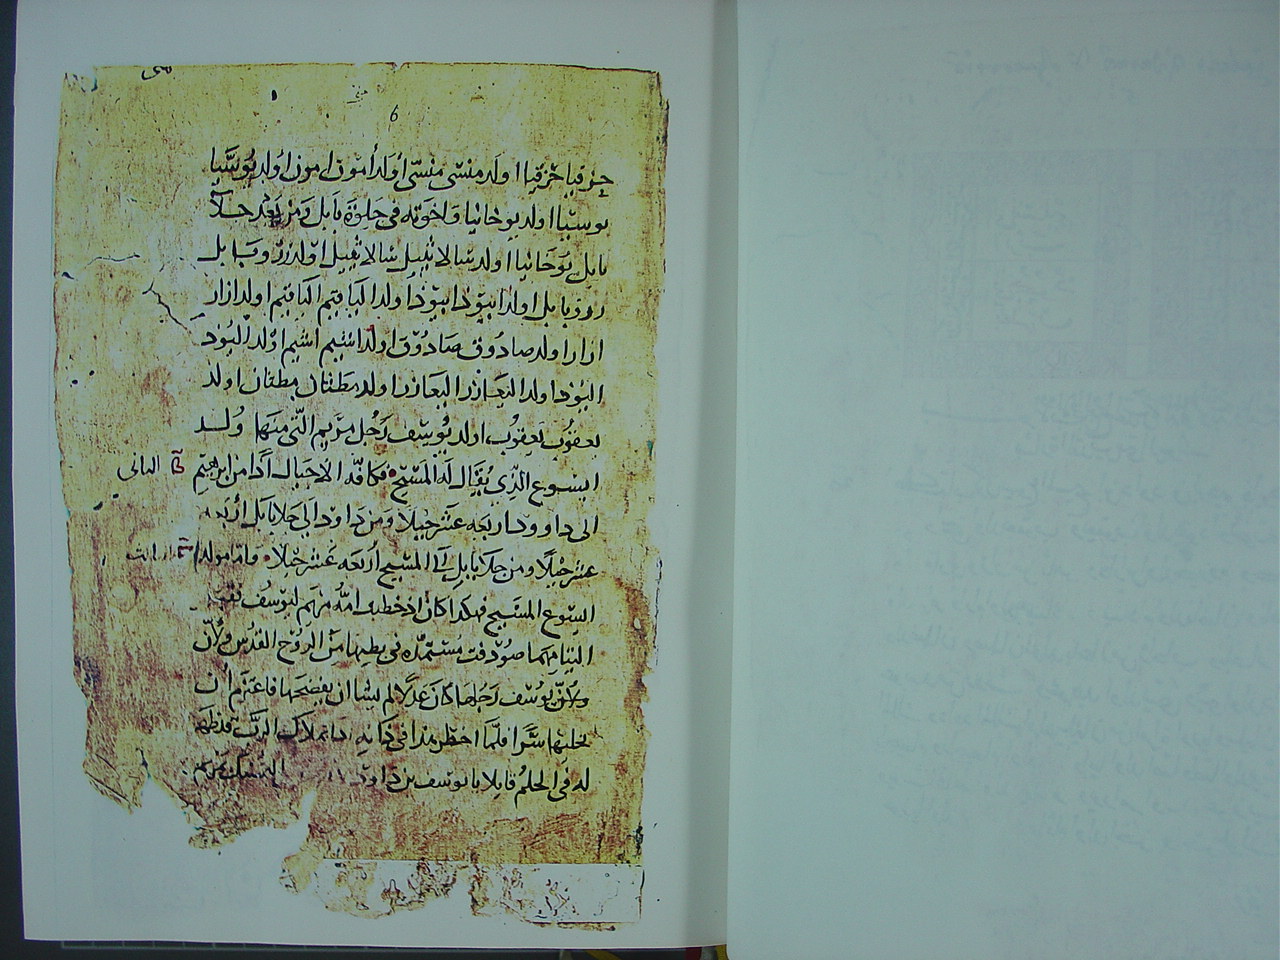 6
حزقيا حزقيا اولد منسى منسى اولد امون امون اولد يوسيا
يوسيا اولد يوخانيا واخوته في جلوة بابل ومن بعد جلا
بابل يوخانيا اولد شالاثييل شالاثييل اولد زروبابل
زروبابل اولد ابيوذ ابيوذ اولد الياقيم الياقيم اولد ازار
ازار اولد صادوق صادوق اولد اشيم اشيم اولد اليوذ
اليوذ اولد اليعازر اليعازر اولد مطثان مطثان اولد
يعقوب يعقوب اولد يوسف رجل مريم التي منها ولد
ايسوع الذي يقال له المسيح فكافة الاجيال اذا من ابرهيم
الى داوود اربعه عشر جيلا ومن داود الى جلا بابل اربعه
عشر جيلا ومن جلا بابل الى المسيح اربعه عشر جيلا واما مولد
ايسوع المسيح فهكذا كان اذ خطبت امه مريم ليوسف
صودفت مستمة في بطنها من الروح القدس ولان
يوسف رجلها كان عدلا لم يشا ان يفضحها فاعتزم ان
يخليها سرا فلما اخطر هذا في ذاته ملاك الرب قد ظهر
له في الحلم قايلا يا يوسف بن داود مريم